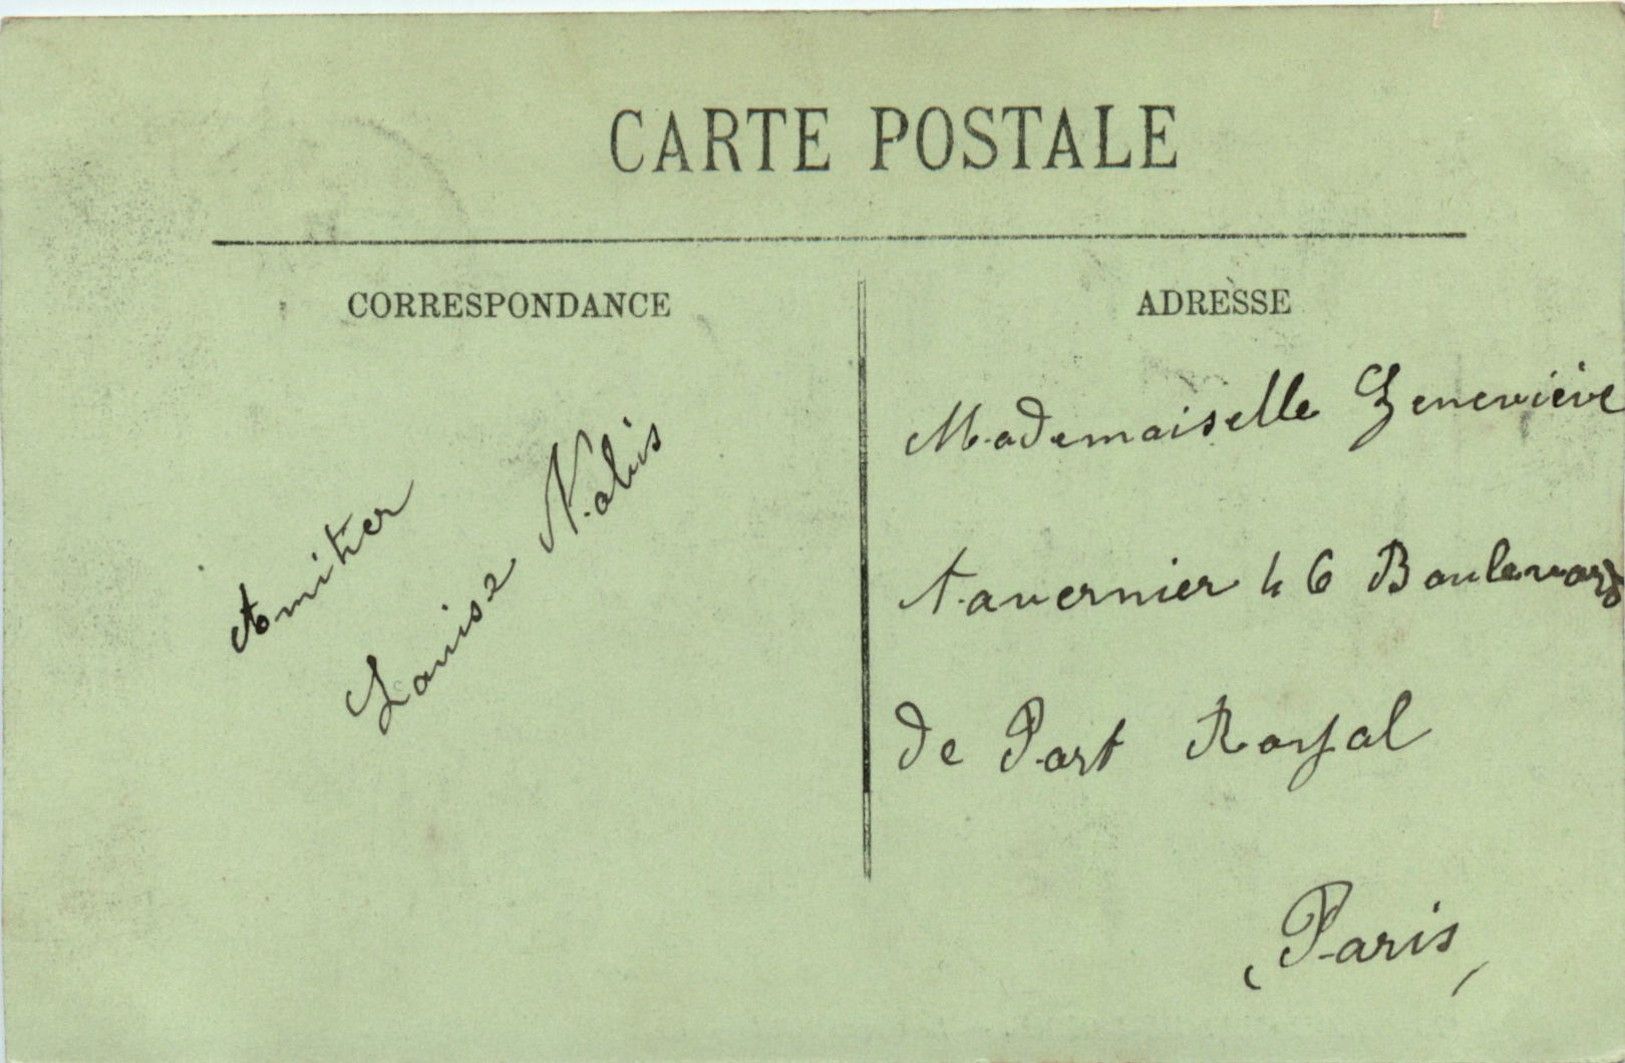 CARTE POSTALE
CORRESPONDANCE
Amitier
Louise Nabis
ADRESSE
Mademoiselle Geneviève
Tavernier 46 Boulevard
de Port Royal
(Paris)